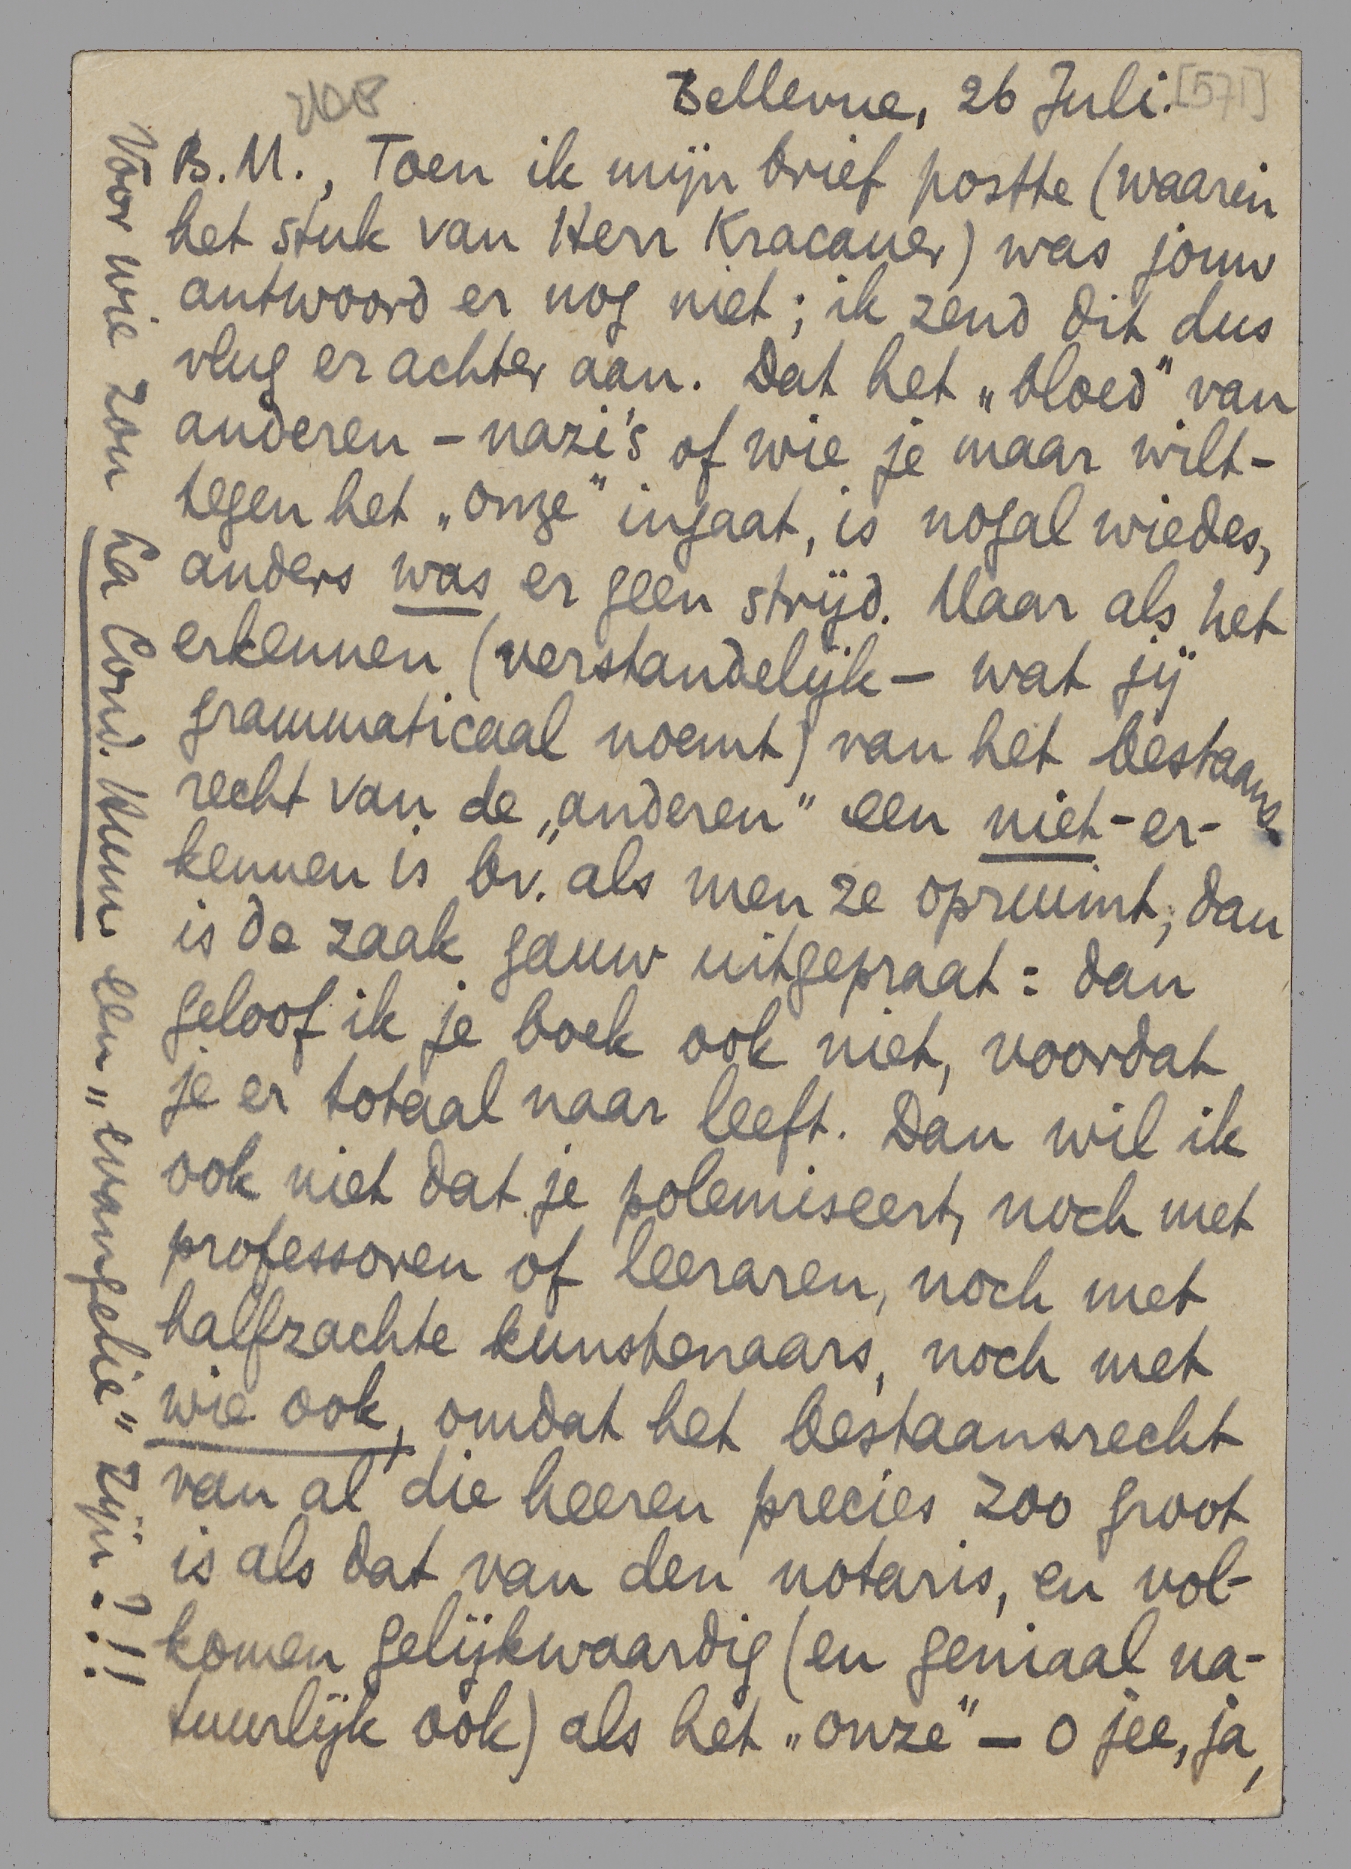 Bellevue, 26 Juli. [571]
B.M., Toen ik mijn brief postte (waarin
het stuk van Herr Kracauer) was jouw
antwoord er nog niet; ik zend dit dus
vlug er achter aan. Dat het „bloed” van
anderen – nazi's of wie je maar wilt –
tegen het „onze” ingaat, is nogal wiedes,
anders was er geen strijd. Maar als het
erkennen (verstandelijk – wat jij
grammaticaal noemt) van het bestaans-
recht van de „anderen” een niet-er-
kennen is bv. als men ze opruimt, dan
is de zaak gauw uitgepraat: dan
geloof ik je boek ook niet, voordat
je er totaal naar leeft. Dan wil ik
ook niet dat je polemiseert, noch met
professoren of leeraren, noch met
halfzachte kunstenaars, noch met
wie ook, omdat het bestaansrecht
van al die heeren precies zoo groot
is als dat van den notaris, en vol-
komen gelijkwaardig (en geniaal na-
tuurlijk ook) als het „onze” – O jee, ja,
Voor wie zou La Cond. Hum. een „evangelie” zijn?!!